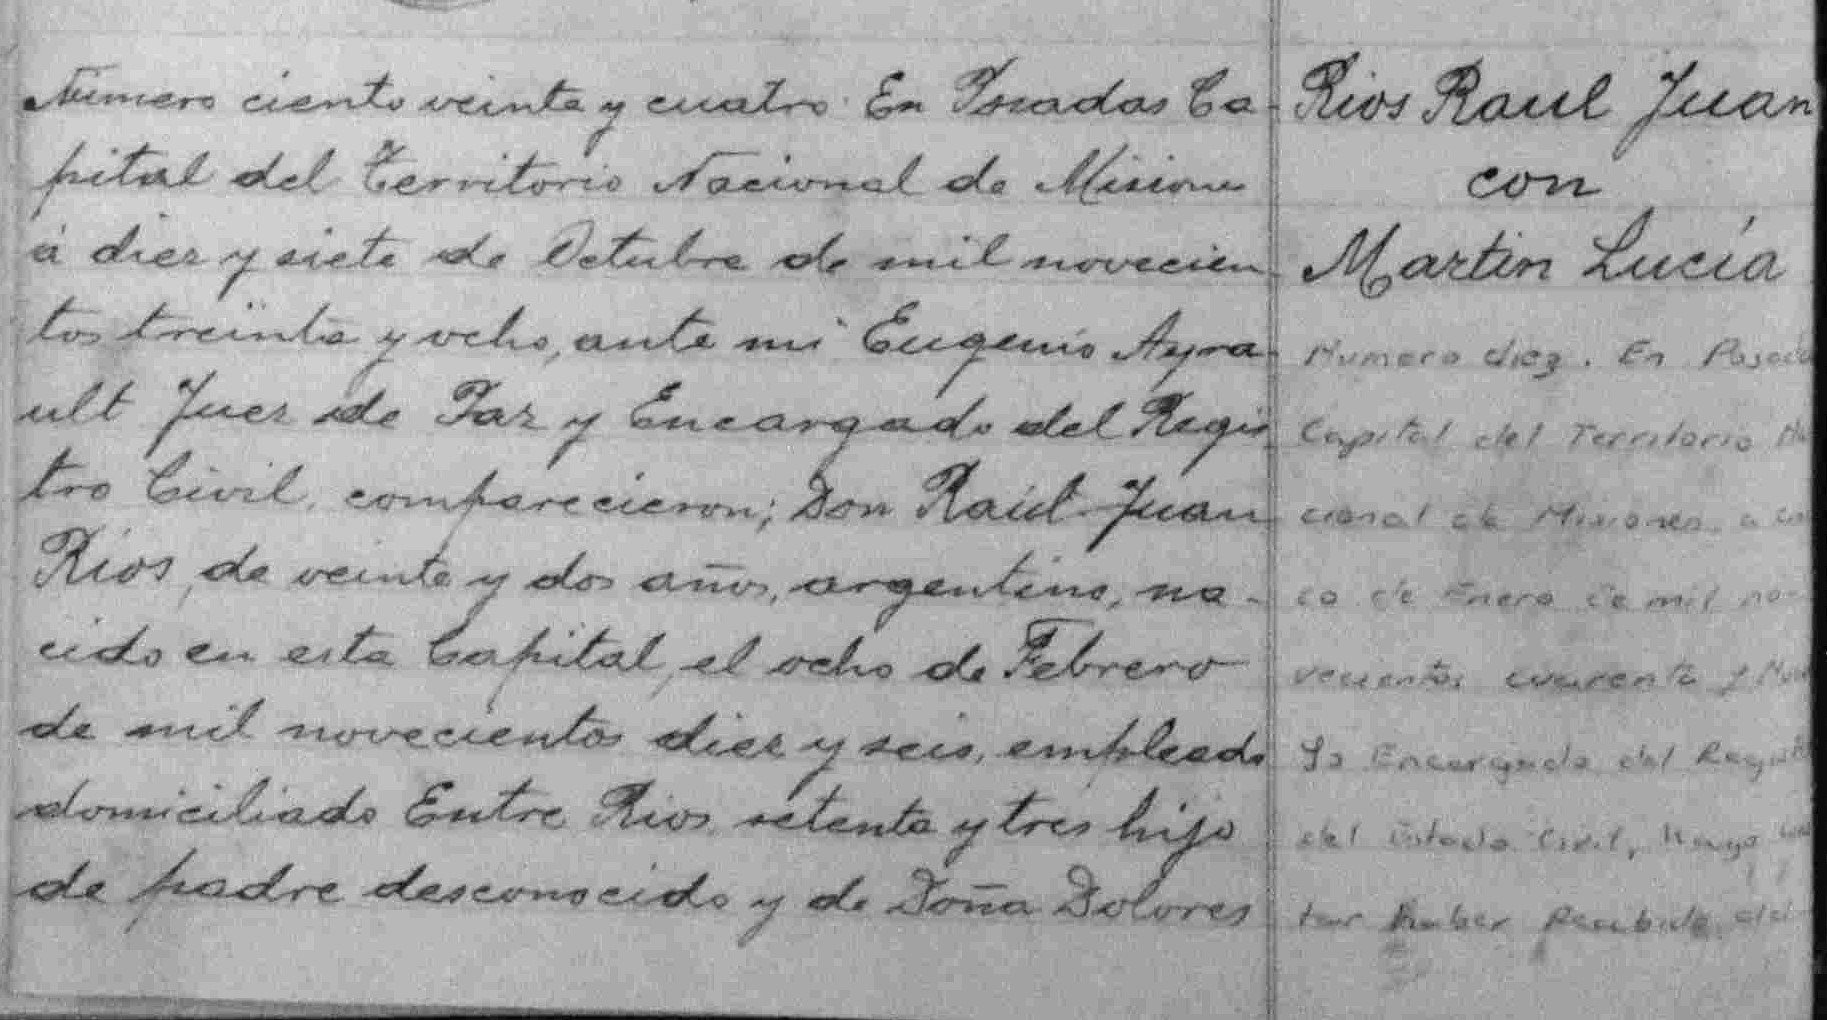 Número ciento veinte y cuatro. En Posadas Ca-
pital del Territorio Nacional de Misiones
á diez y siete de Octubre de mil novecien-
tos treinta y ocho, ante mi Eugenio Ayra-
ult Juez de Paz y Encargado del Regis
tro Civil, comparecieron; Don Raúl Juan
Rios, de veinte y dos años, argentino, na-
cido en esta Capital, el ocho de Febrero
de mil novecientos diez y seis, empleado
domiciliado Entre Rios setenta y tres hijo
de padre desconocido y de Doña Dolores
Rios Raul Juan
con
Martin Lucía
Numero diez. En Posada
Capital del Territorio Na
cional de Misiones, a
co de Enero de mil no-
vecientos cuarenta y
Yo Encargado del Regist
del Estado Civil, hago
tar haber Recibido del